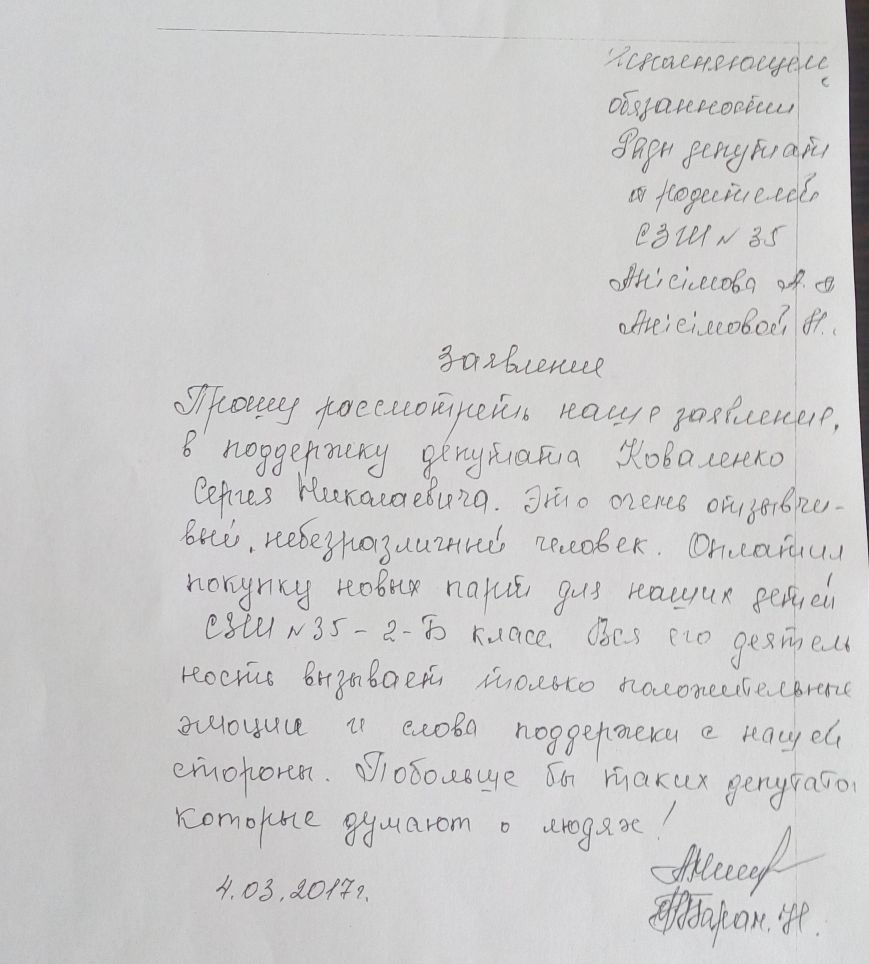 Исполняющем
обязанности
Ради депутат
от родителей
СЗШ № 35
Анісімова А. В
Анісімовой Н.
Заявление
Прошу рассмотреть наше заявление,
в поддержку депутата Коваленко
Сергея Николаевича. Это очень отзывчи-
вый, небезразличный человек. Оплатил
покупку новых парт для наших детей
СЗШ № 35 - 2-Б класс. Вся его деятель
ность вызывает только положительные
эмоции и слова поддержки с нашей
стороны. Побольше бы таких депутато
которые думают о людях!
4.03.2017г.
Таран. Н.